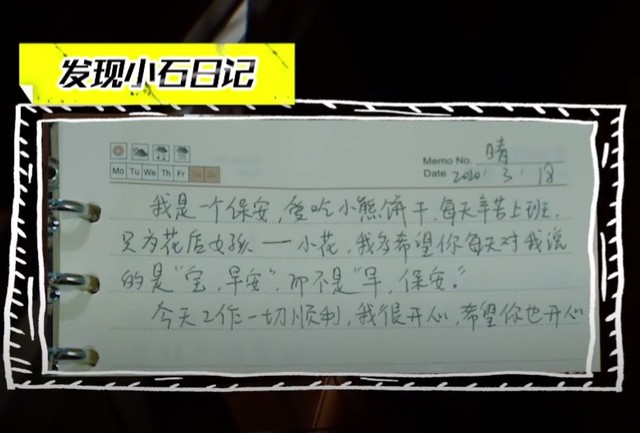 发现小石日记
Memo No. 晴
Mo Tu We Th Fr Sa Su
Date 2020.3.18
我是一个保安,爱吃小熊饼干,每天辛苦上班,
只为花店女孩——小花,我多希望你每天对我说
的是“宝,早安”,而不是“早,保安。”
今天工作一切顺利,我很开心,希望你也开心